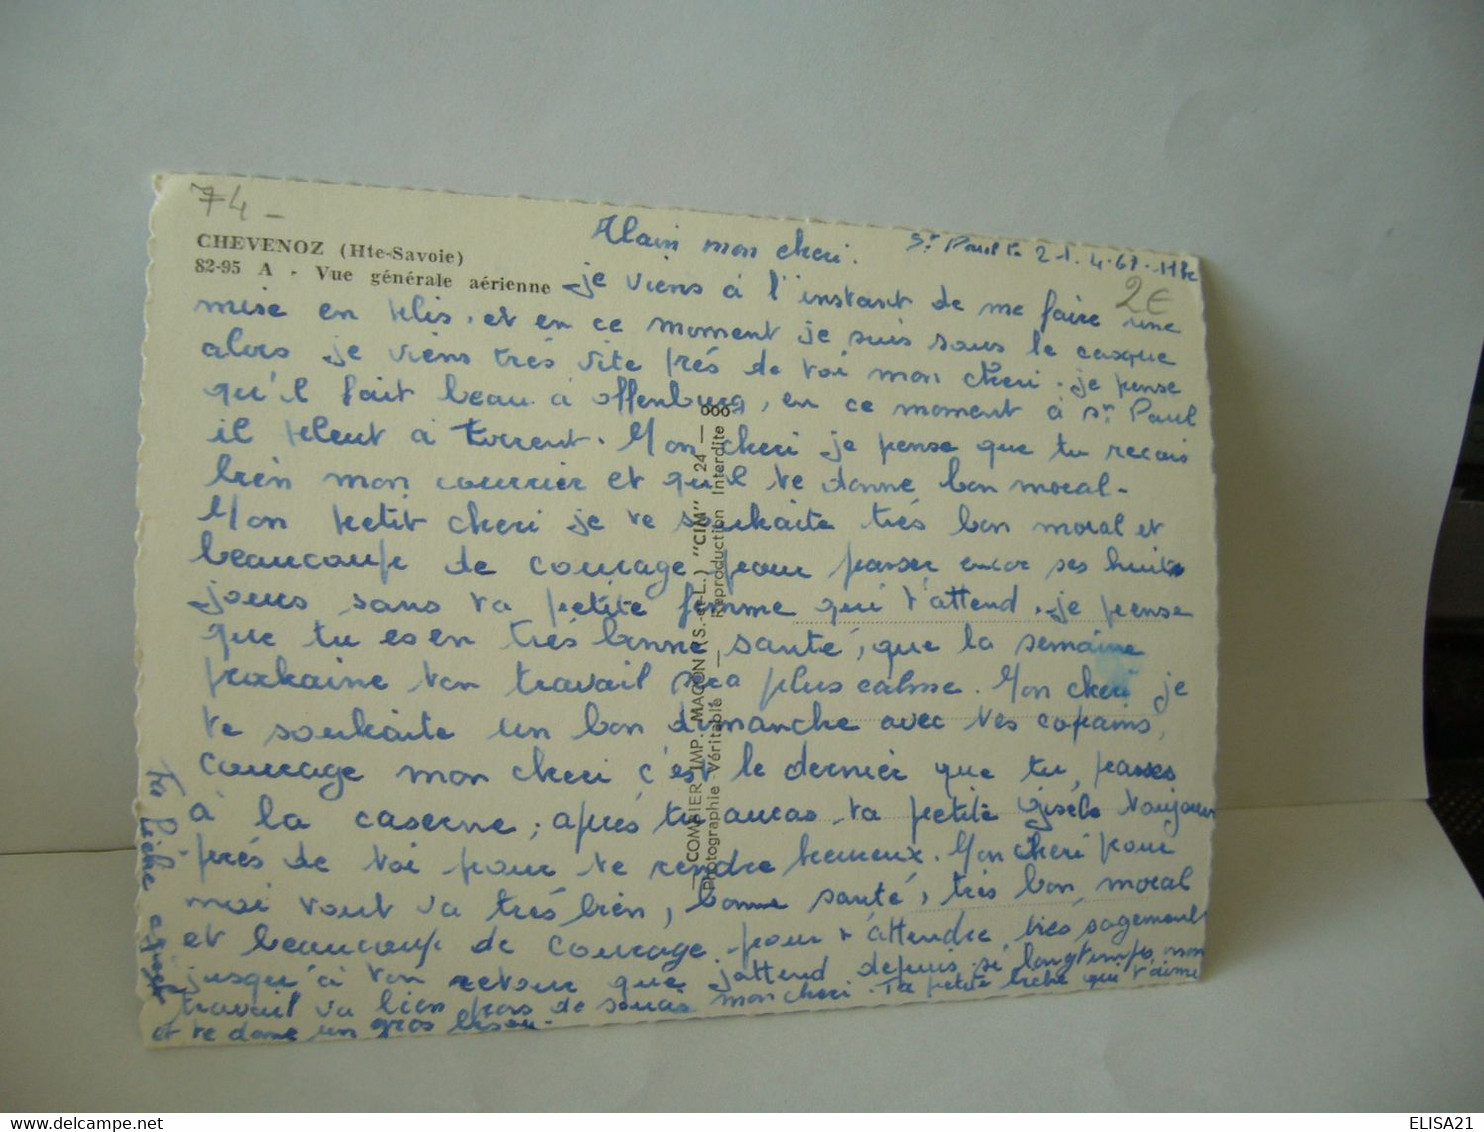 74 -
CHEVENOZ (Hte-Savoie)
82-95 A - Vue générale aérienne
Alain mon cheri. St Paul le 21.4.61.
2€
je viens à l'instant de me faire une
mise en plis, et en ce moment je suis sous le casque
alors je viens très vite près de toi mon cheri. je pense
qu'il fait beau à offenburg, en ce moment à St Paul
il pleut à torrent. Mon cheri je pense que tu recois
bien mon courrier et qu'il te donne bon moral.
Mon petit cheri je te souhaite très bon moral et
beaucoup de courage pour passer encor ses huits
jours sans ta petite femme qui t'attend. je pense
que tu es en très bonne santé, que la semaine
prochaine ton travail sera plus calme. Mon cheri je
te souhaite un bon dimanche avec tes copains,
courage mon cheri c'est le dernier que tu passes
à la caserne, après tu auras ta petite gisèle toujours
près de toi pour te rendre heureux. Mon cheri pour
moi tout va très bien, bonne santé, très bon moral
et beaucoup de courage. pour t'attendre très sagement
jusqu'à ton retour que j'attend depuis si longtemps, mon
travail va bien pas de soucis mon cheri. Ta petite biche qui t'aime
et te donne un gros bisou.
Ta biche
COMBIER IMP. MACON (S.-et-L.) "CIM"
Photographie Véritable — Reproduction Interdite
ELISA21